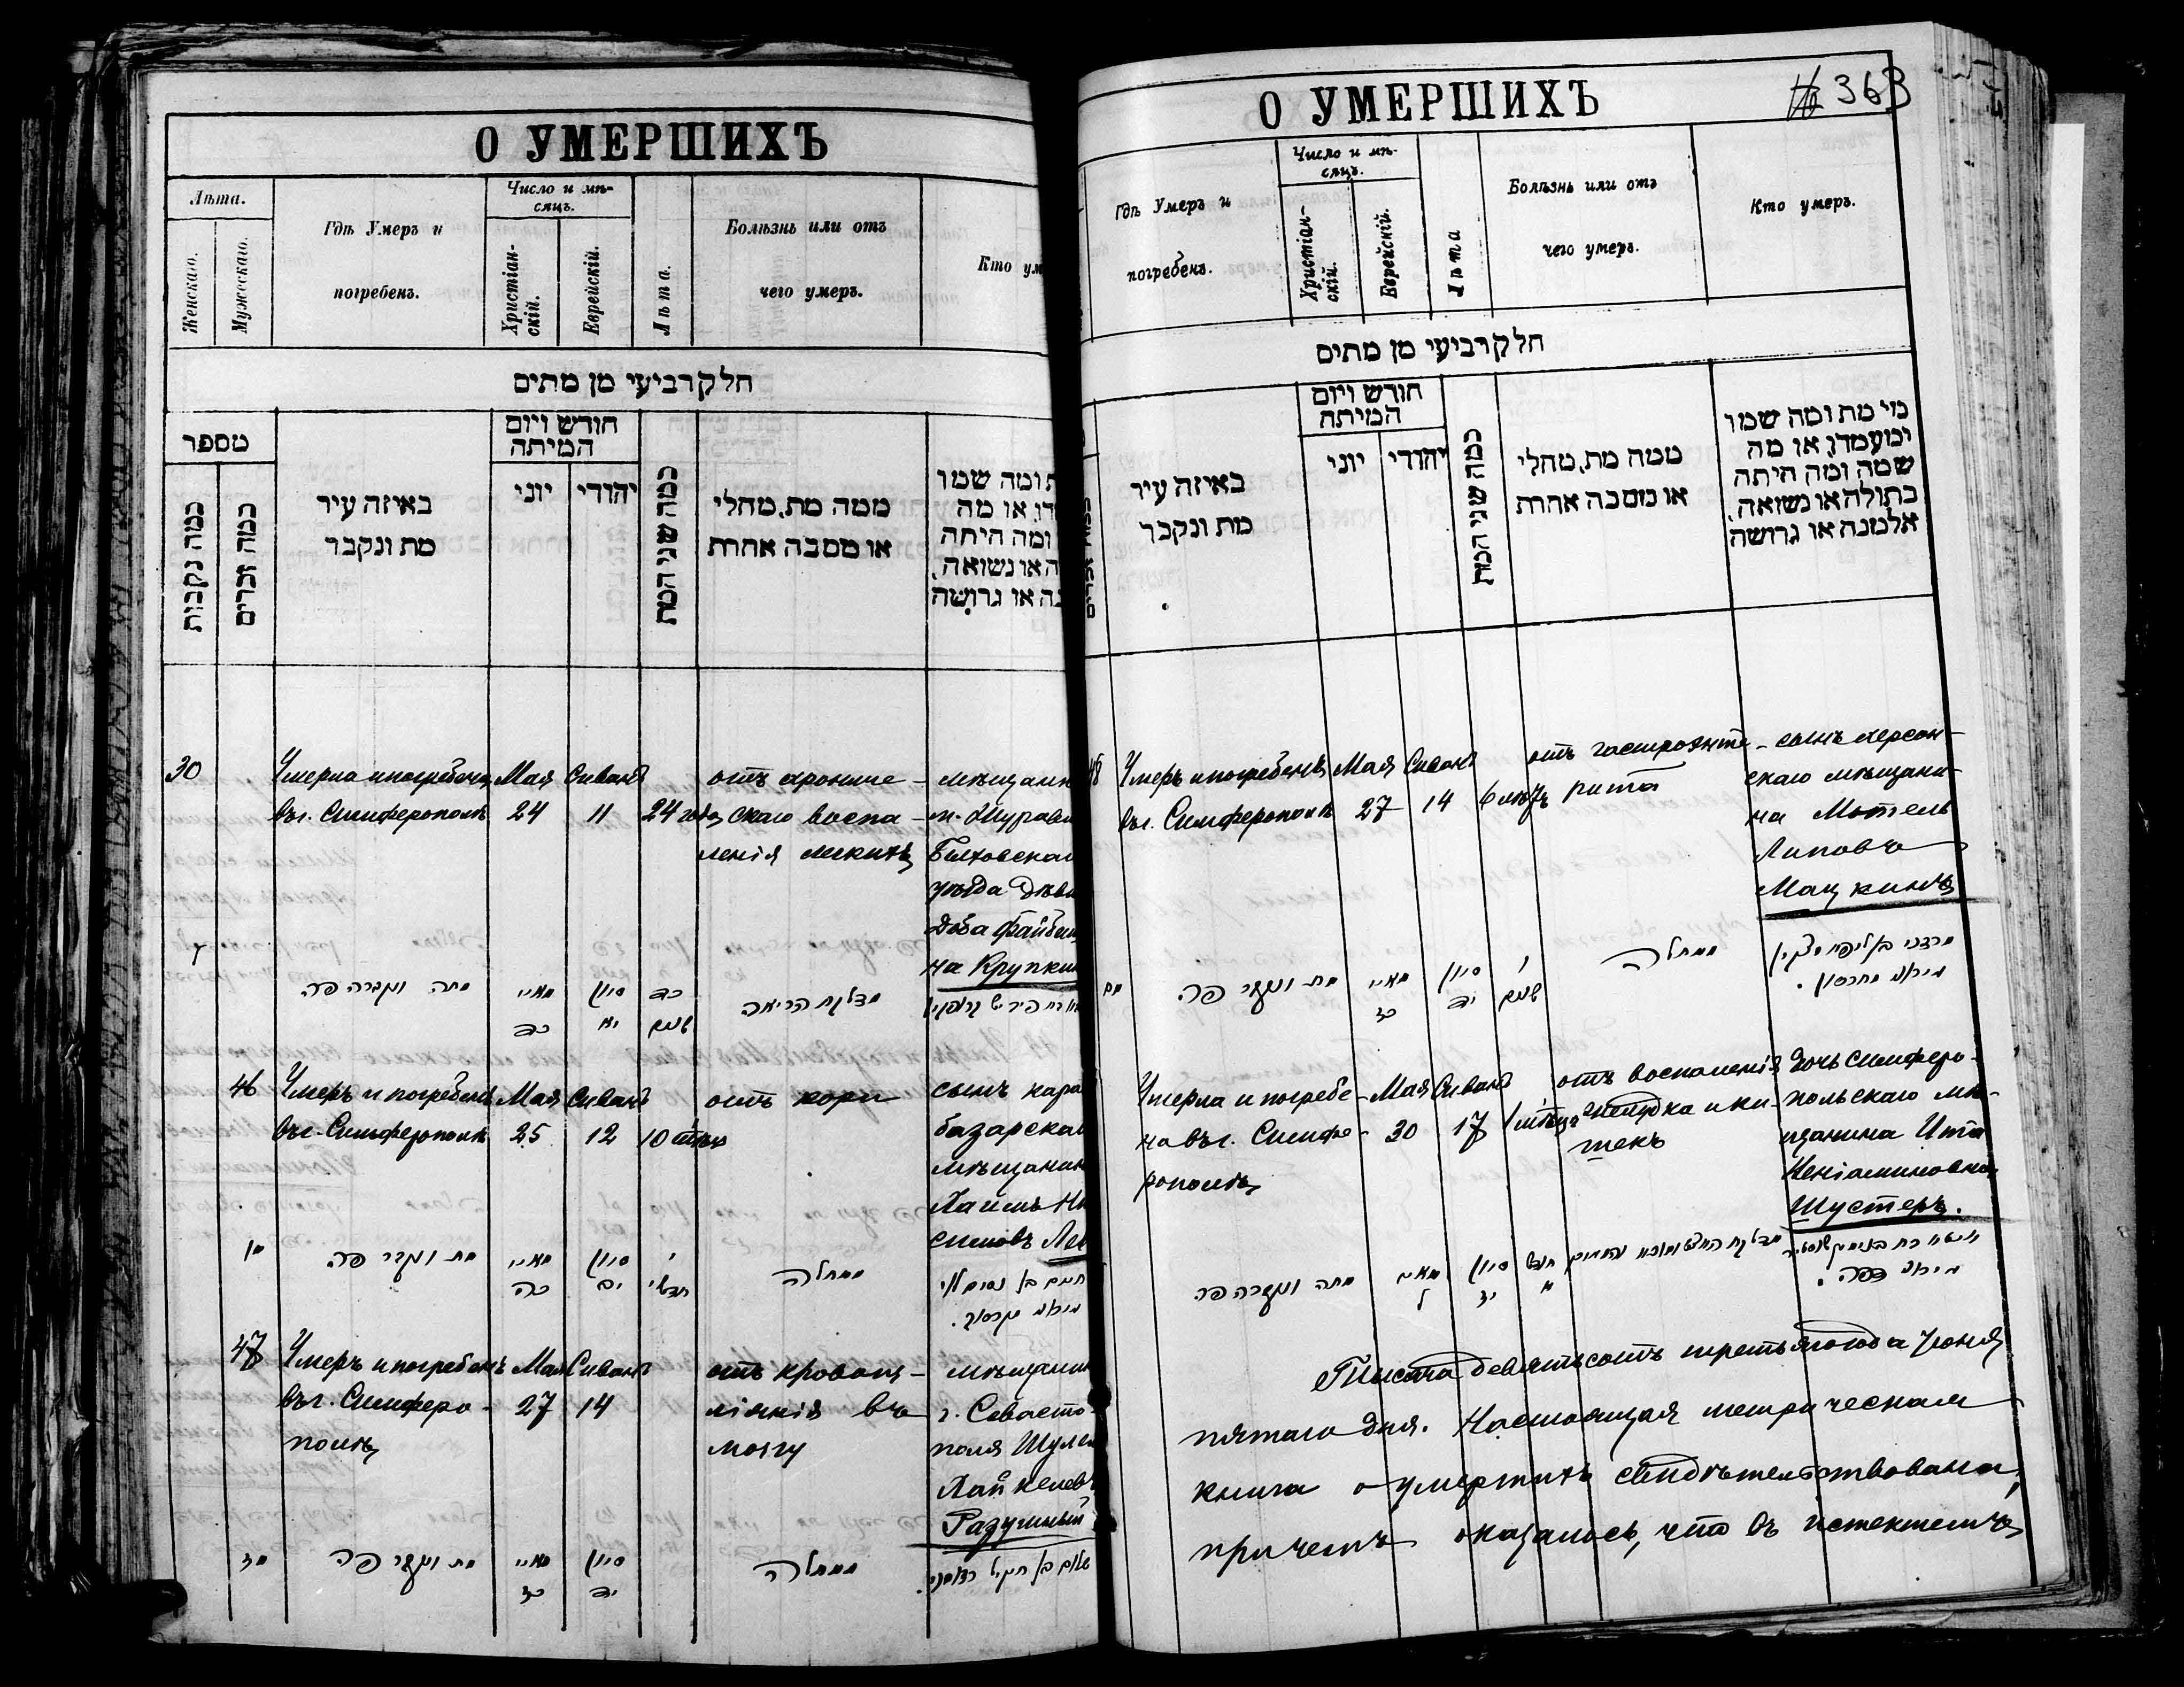 О УМЕРШИХЪ
Лѣта.
Женскаго.
Мужескаго.
Гдѣ Умеръ и
погребенъ.
Число и мѣ-
сяцъ.
Христіан-
скій.
Еврейскій.
Лѣта.
Болѣзнь или отъ
чего умеръ.
Кто ум
חלק רביעי מן מתים
מספר
כמה נקבות
כמה זכרים
באיזה עיר
מת ונקבר
חודש ויום
המיתה
יוני
יהודי
כמה שני המת
ממה מת, מחלי
או מסבה אחרת
ת ומה שמו
דו, או מה
ומה היתה
ה או נשואה,
נה או גרושה
30
Умерла и погребена
въ г. Симферополѣ
Мая
24
Сивана
11
24 года
отъ хрониче-
скаго воспа-
ленія легкихъ
мѣщанк
м. Журави
Быховскаго
уѣзда дѣви
Доба Файбеш
на Крупкин
מתה ונקברה פה
מאיי
כד
סיון
יא
כד
שנים
מדלקת הריאה
46
Умеръ и погребенъ
въ г. Симферополѣ
Мая
25
Сивана
12
10 мѣс
отъ кори
сынъ кара
базарскаго
мѣщанин
Хаимъ Ни
симовъ Ле
מו
מת ונקבר פה
מאיי
כה
סיון
יב
י
חדשי
ממחלה
חיים בן נסים לוי
מקרסוב.
47
Умеръ и погребенъ
въ г. Симферо-
полѣ
Мая
27
Сивана
14
отъ кровоиз-
ліянія въ
мозгу
мѣщанин
г. Севасто
поля Шулем
Хайкелевъ
Разумный
מז
מת ונקבר פה
מאיי
כז
סיון
יד
ממחלה
О УМЕРШИХЪ
363
Гдѣ Умеръ и
погребенъ.
Число и мѣ-
сяцъ.
Христіан-
скій.
Еврейскій.
Лѣта
Болѣзнь или отъ
чего умеръ.
Кто умеръ.
חלק רביעי מן מתים
באיזה עיר
מת ונקבר
חודש ויום
המיתה
יוני
יהודי
כמה שני המת
ממה מת, מחלי
או מסבה אחרת
מי מת ומה שמו
ומעמדו, או מה
שמה ומה היתה
בתולה או נשואה,
אלמנה או גרושה
48
Умеръ и погребенъ
въ г. Симферополѣ
Мая
27
Сивана
14
6 лѣтъ
отъ гастроэнте-
рита
сынъ херсон-
скаго мѣщани-
на Мотель
Липовъ
Мацкинъ
מח
מת ונקבר פה
מאיי
כז
סיון
יד
ו
שנים
ממחלה
מרדכי בן ליפא מצקין
מחרסון.
Умерла и погребе-
на въ г. Симфе-
рополѣ
Мая
30
Сивана
17
1 мѣсяцъ
отъ воспаленія
желудка и ки-
шекъ
дочь симферо-
польскаго мѣ-
щанина Ита
Веніаминовна
Шустеръ.
מתה ונקברה פה
מאיי
ל
סיון
יז
חודש
א
Тысяча девятьсотъ третьяго года Іюня
пятаго дня. Настоящая метрическая
книга о умершихъ свидѣтельствована,
причемъ оказалось, что въ истекшемъ